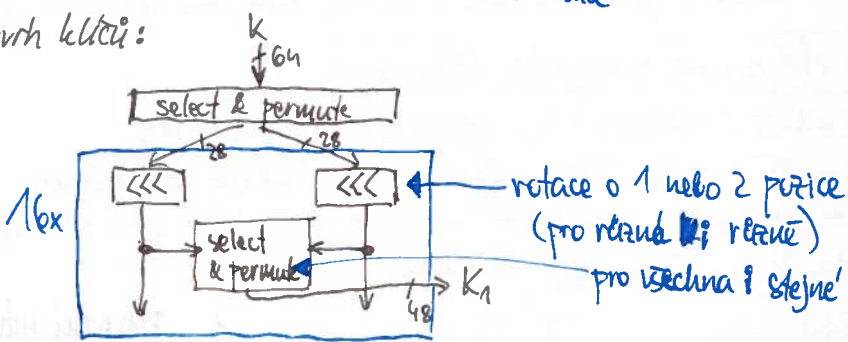 klíčů:
K
64
select & permute
28 28
<<< <<<
16x
rotace o 1 nebo 2 pozice
(pro různá i různě)
select
& permute
pro všechna i stejné
48
K₁